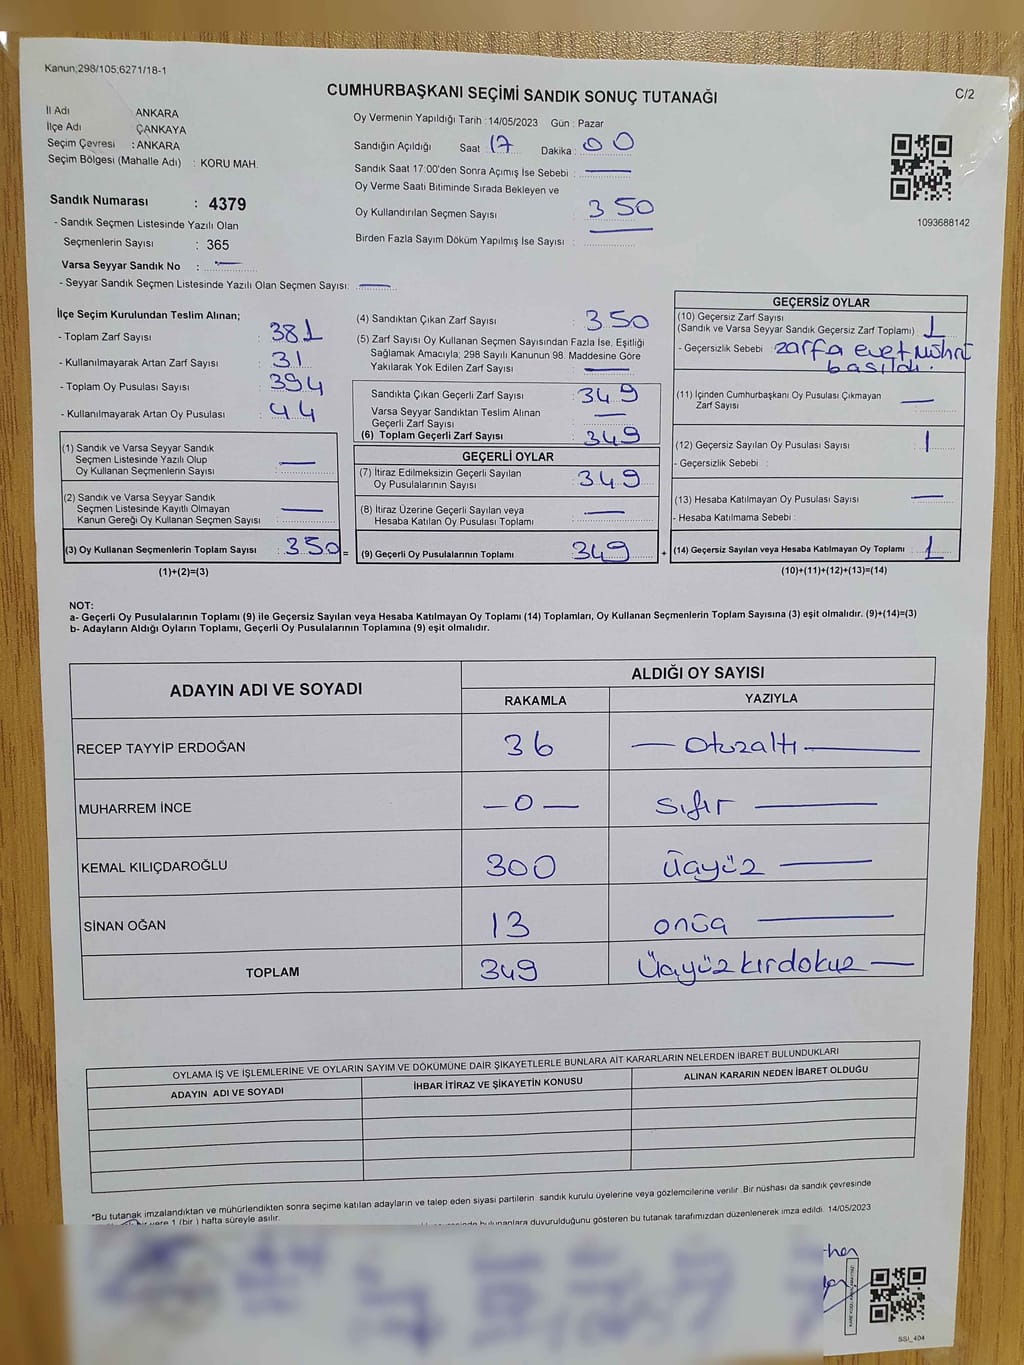 Kanun;298/105;6271/18-1
CUMHURBAŞKANI SEÇİMİ SANDIK SONUÇ TUTANAĞI
C/2
İl Adı ANKARA
İlçe Adı : ÇANKAYA
Seçim Çevresi : ANKARA
Seçim Bölgesi (Mahalle Adı) : KORU MAH.
Sandık Numarası : 4379
- Sandık Seçmen Listesinde Yazılı Olan
Seçmenlerin Sayısı : 365
Varsa Seyyar Sandık No : —
- Seyyar Sandık Seçmen Listesinde Yazılı Olan Seçmen Sayısı: —
Oy Vermenin Yapıldığı Tarih : 14/05/2023 Gün : Pazar
Sandığın Açıldığı Saat 17 Dakika : 00
Sandık Saat 17:00'den Sonra Açmış İse Sebebi : —
Oy Verme Saati Bitiminde Sırada Bekleyen ve
Oy Kullandırılan Seçmen Sayısı 350
Birden Fazla Sayım Döküm Yapılmış İse Sayısı :
1093688142
İlçe Seçim Kurulundan Teslim Alınan;
- Toplam Zarf Sayısı : 381
- Kullanılmayarak Artan Zarf Sayısı : 31
- Toplam Oy Pusulası Sayısı : 394
- Kullanılmayarak Artan Oy Pusulası : 44
(1) Sandık ve Varsa Seyyar Sandık
Seçmen Listesinde Yazılı Olup
Oy Kullanan Seçmenlerin Sayısı : —
(2) Sandık ve Varsa Seyyar Sandık
Seçmen Listesinde Kayıtlı Olmayan
Kanun Gereği Oy Kullanan Seçmen Sayısı : —
(3) Oy Kullanan Seçmenlerin Toplam Sayısı : 350 =
(1)+(2)=(3)
(4) Sandıktan Çıkan Zarf Sayısı : 350
(5) Zarf Sayısı Oy Kullanan Seçmen Sayısından Fazla İse, Eşitliği
Sağlamak Amacıyla; 298 Sayılı Kanunun 98. Maddesine Göre
Yakılarak Yok Edilen Zarf Sayısı : —
Sandıkta Çıkan Geçerli Zarf Sayısı : 349
Varsa Seyyar Sandıktan Teslim Alınan
Geçerli Zarf Sayısı : —
(6) Toplam Geçerli Zarf Sayısı : 349
GEÇERLİ OYLAR
(7) İtiraz Edilmeksizin Geçerli Sayılan
Oy Pusulalarının Sayısı : 349
(8) İtiraz Üzerine Geçerli Sayılan veya
Hesaba Katılan Oy Pusulası Toplamı : —
(9) Geçerli Oy Pusulalarının Toplamı : 349 +
GEÇERSİZ OYLAR
(10) Geçersiz Zarf Sayısı
(Sandık ve Varsa Seyyar Sandık Geçersiz Zarf Toplamı) : 1
- Geçersizlik Sebebi : zarfa evet mührü
basıldı.
(11) İçinden Cumhurbaşkanı Oy Pusulası Çıkmayan
Zarf Sayısı : —
(12) Geçersiz Sayılan Oy Pusulası Sayısı : 1
- Geçersizlik Sebebi :
(13) Hesaba Katılmayan Oy Pusulası Sayısı : —
- Hesaba Katılmama Sebebi :
(14) Geçersiz Sayılan veya Hesaba Katılmayan Oy Toplamı : 1
(10)+(11)+(12)+(13)=(14)
NOT:
a- Geçerli Oy Pusulalarının Toplamı (9) ile Geçersiz Sayılan veya Hesaba Katılmayan Oy Toplamı (14) Toplamları, Oy Kullanan Seçmenlerin Toplam Sayısına (3) eşit olmalıdır. (9)+(14)=(3)
b- Adayların Aldığı Oyların Toplamı, Geçerli Oy Pusulalarının Toplamına (9) eşit olmalıdır.
ADAYIN ADI VE SOYADI ALDIĞI OY SAYISI
RAKAMLA YAZIYLA
RECEP TAYYİP ERDOĞAN 36 — Otuzaltı —
MUHARREM İNCE —0— sıfır —
KEMAL KILIÇDAROĞLU 300 üçyüz —
SİNAN OĞAN 13 onüç —
TOPLAM 349 Üçyüzkırdokuz —
OYLAMA İŞ VE İŞLEMLERİNE VE OYLARIN SAYIM VE DÖKÜMÜNE DAİR ŞİKAYETLERLE BUNLARA AİT KARARLARIN NELERDEN İBARET BULUNDUKLARI
ADAYIN ADI VE SOYADI İHBAR İTİRAZ VE ŞİKAYETİN KONUSU ALINAN KARARIN NEDEN İBARET OLDUĞU
*Bu tutanak imzalandıktan ve mühürlendikten sonra seçime katılan adayların ve talep eden siyasi partilerin sandık kurulu üyelerine veya gözlemcilerine verilir. Bir nüshası da sandık çevresinde
1 (bir) hafta süreyle asılır.
bulunanlara duyurulduğunu gösteren bu tutanak tarafımızdan düzenlenerek imza edildi. 14/05/2023
SSI_404